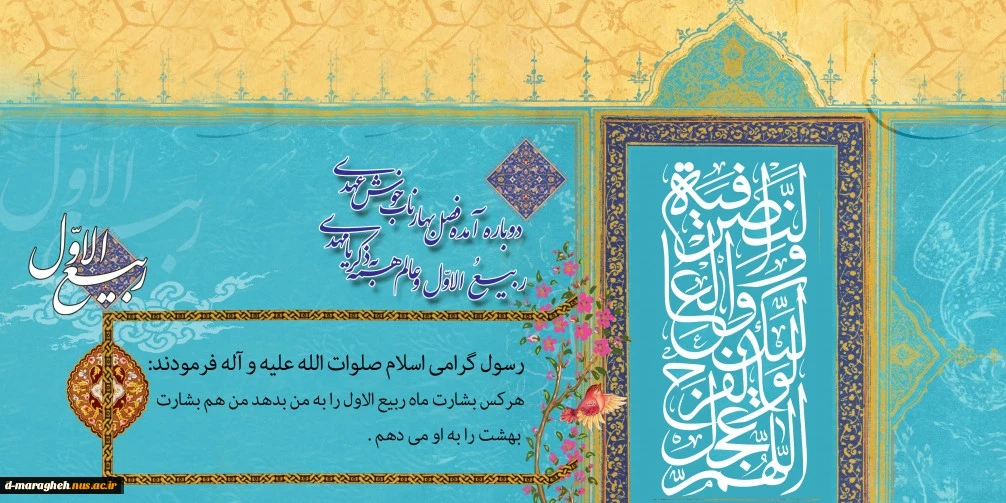 دوباره آمده فصل بهار ناب خوش عهدی
ربیعُ الاوّل و عالم همه به ذکر یا مهدی
ربیع الاوّل
رسول گرامی اسلام صلوات الله علیه و آله فرمودند:
هرکس بشارت ماه ربیع الاول را به من بدهد من هم بشارت
بهشت را به او می دهم .
اللهم عجل لولیک الفرج والعافیة والنصر
d-maragheh.nus.ac.ir